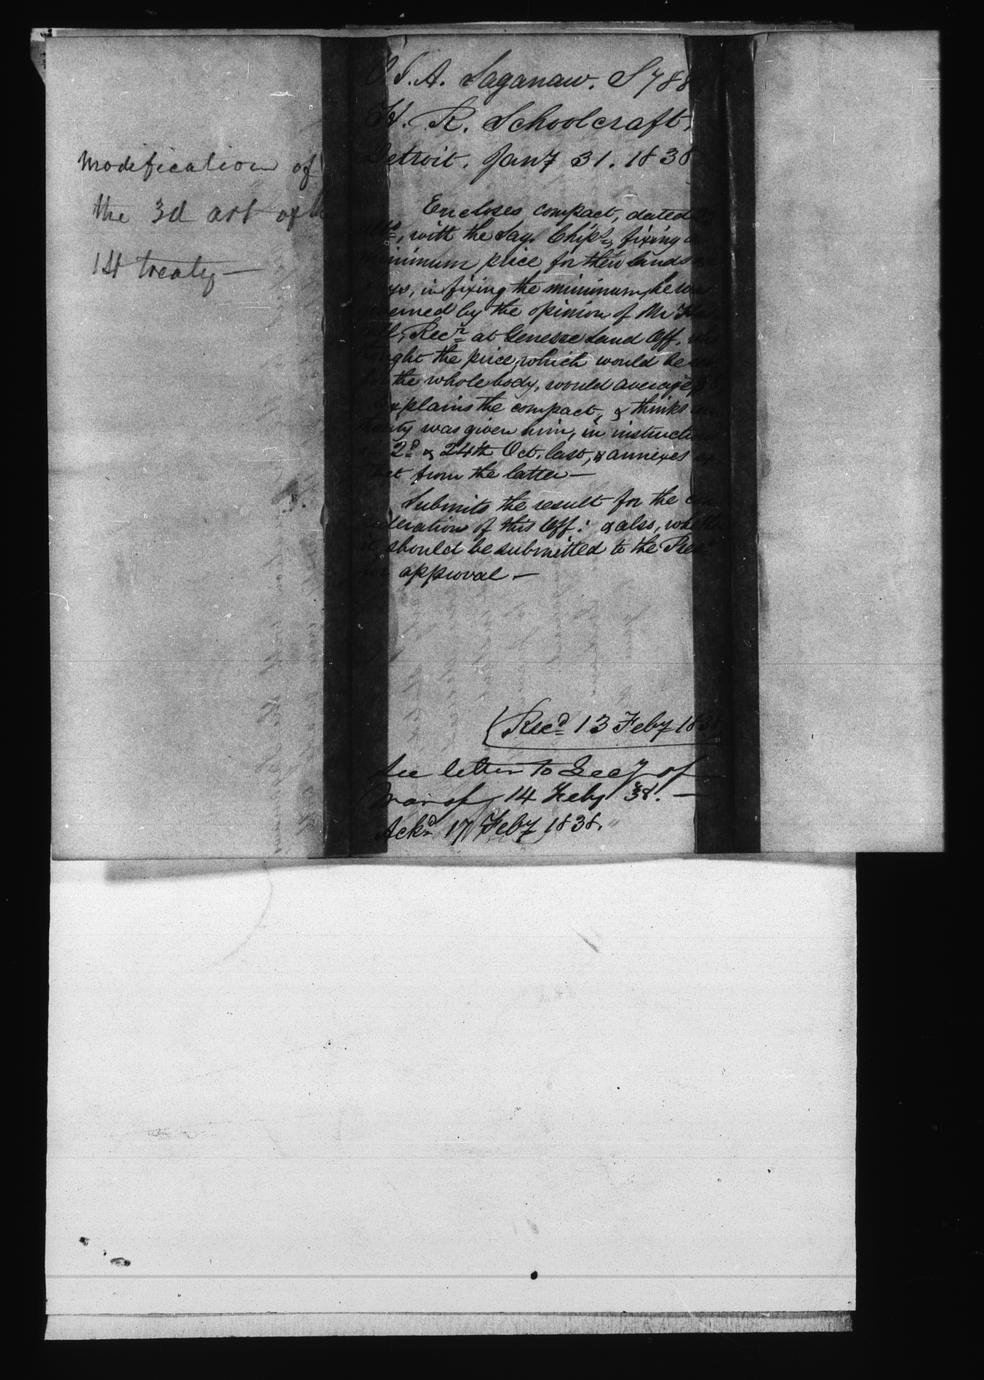 Modification of
the 3d art of
1st treaty —
O.I.A. Saganaw. S 788
H. R. Schoolcraft,
Detroit. Jany 31. 1838
Encloses compact, dated
with the Sag. Chips, fixing a
minimum price for their lands
in fixing the minimum, he was
governed by the opinion of Mr
Recr at Genesee Land Off.
thought the price, which would be
for the whole body, would average
explains the compact, & thinks
was given him, in instructions
2d & 24th Oct. last, & annexes
from the latter —
Submits the result for the con
sideration of this Off: & also, whether
it should be submitted to the Pres
approval —
Recd 13 Feby 183
See letter to Secy of
War of 14 Feby '38. —
Ackd 17 Feby 1838.